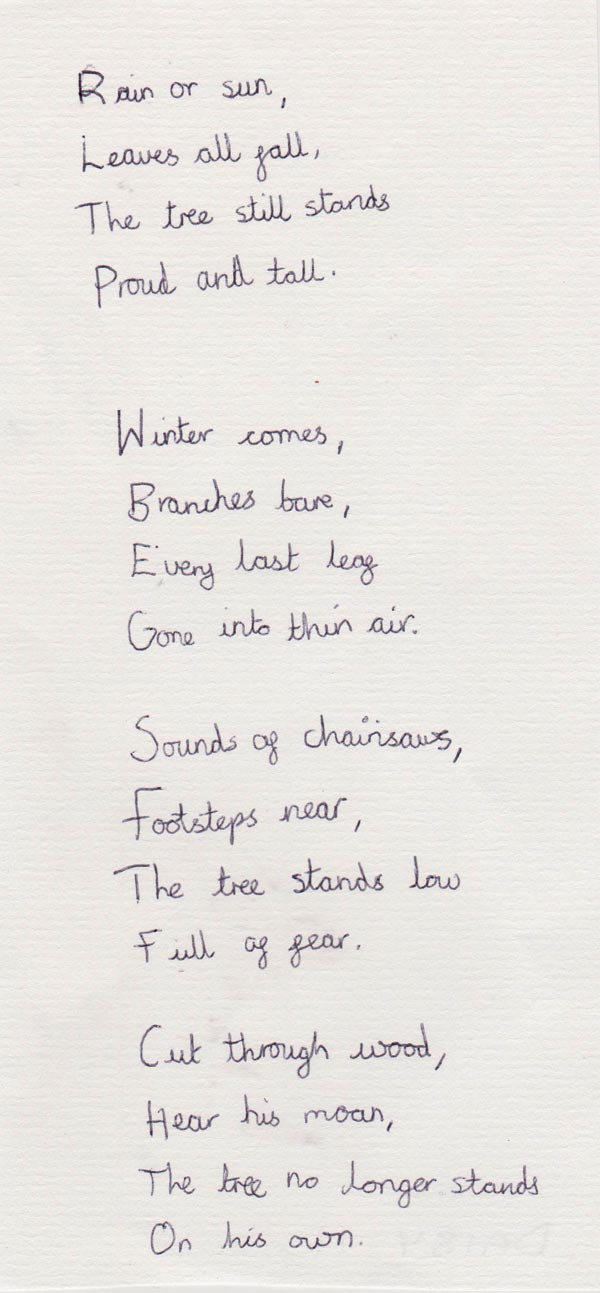 Rain or sun,
Leaves all fall,
The tree still stands
Proud and tall.
Winter comes,
Branches bare,
Every last leaf
Gone into thin air.
Sounds of chainsaws,
Footsteps near,
The tree stands low
Full of fear.
Cut through wood,
Hear his moan,
The tree no longer stands
On his own.